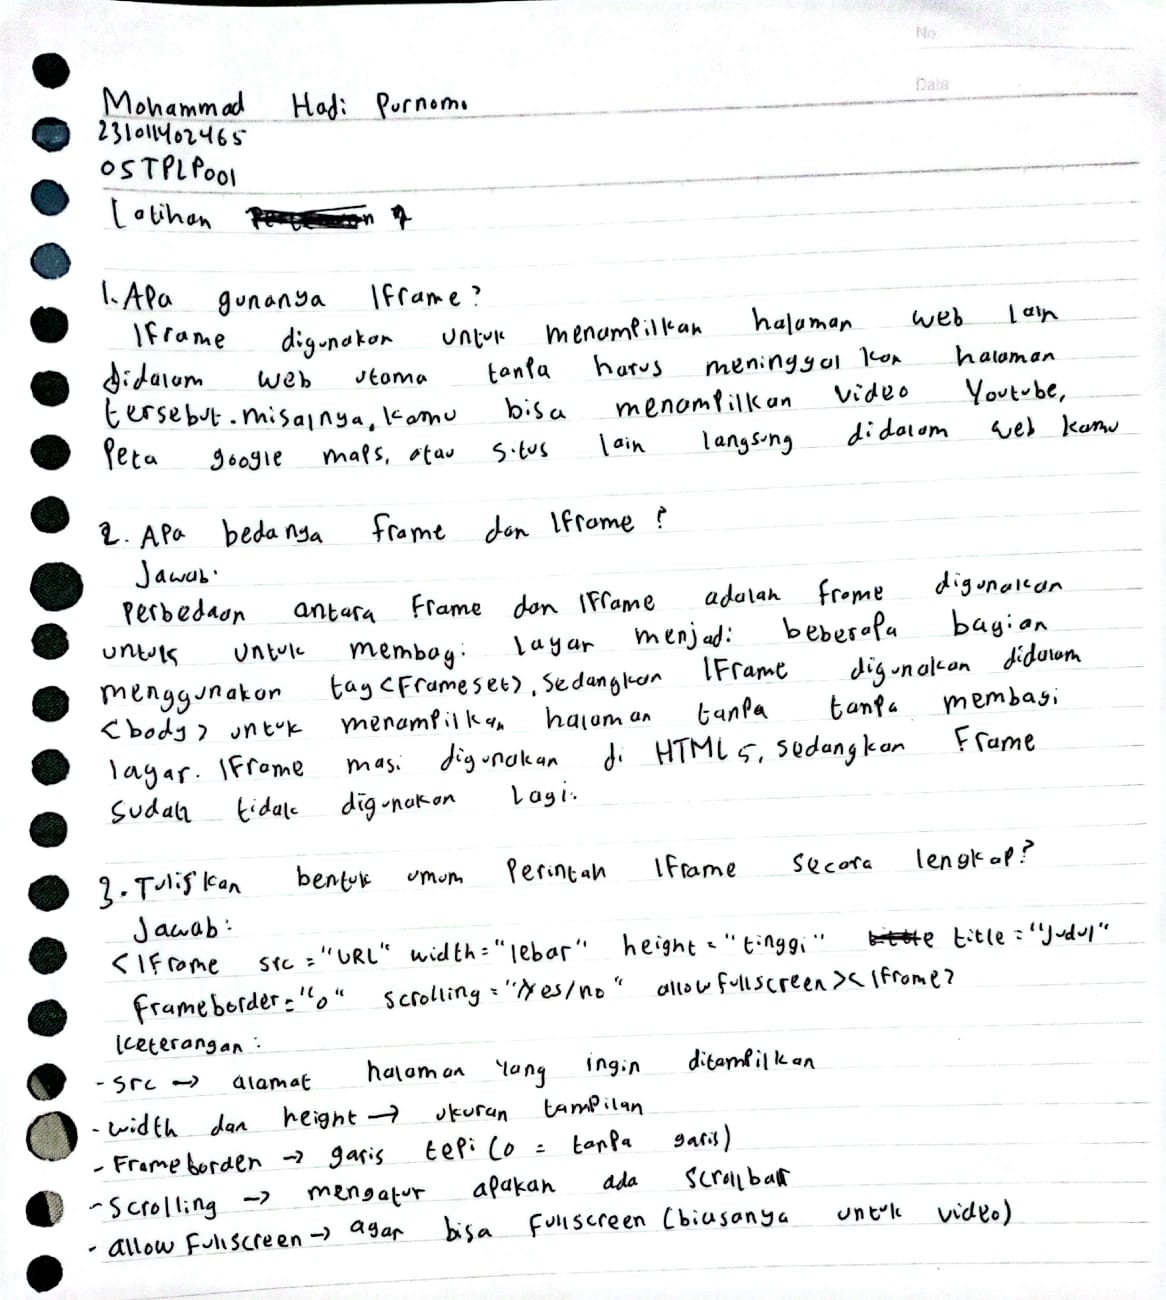 No
Date
Mohammad Hadi Purnomo
231011402465
05TPLP001
Latihan 7
1. Apa gunanya Iframe?
Iframe digunakan untuk menampilkan halaman web lain
didalam web utama tanpa harus meninggal kan halaman
tersebut. misalnya, kamu bisa menampilkan video Youtube,
Peta google maps, atau situs lain langsung didalam web kamu
2. Apa bedanya frame dan Iframe?
Jawab.
Perbedaan antara Frame dan IFrame adalah frame digunakan
untuk untuk membagi layar menjadi beberapa bagian
menggunakan tag <Frameset>, sedangkan IFrame digunakan didalam
<body> untuk menampilkan halaman tanpa tanpa membagi
layar. IFrame masi digunakan di HTML 5, sedangkan Frame
sudah tidak digunakan lagi.
3. Tuliskan bentuk umum Perintah Iframe secara lengkap?
Jawab:
<IFrame src = "URL" width = "lebar" height = "tinggi" title = "Judul"
frameborder = "0" scrolling = "Yes/no" allowfullscreen><Iframe>
Keterangan:
- Src → alamat halaman yang ingin ditampilkan
- width dan height → ukuran tampilan
- Frameborden → garis tepi (0 = tanpa garis)
- Scrolling → mengatur apakan ada scrollbar
- allow Fullscreen → agar bisa Fullscreen (biasanya untuk video)